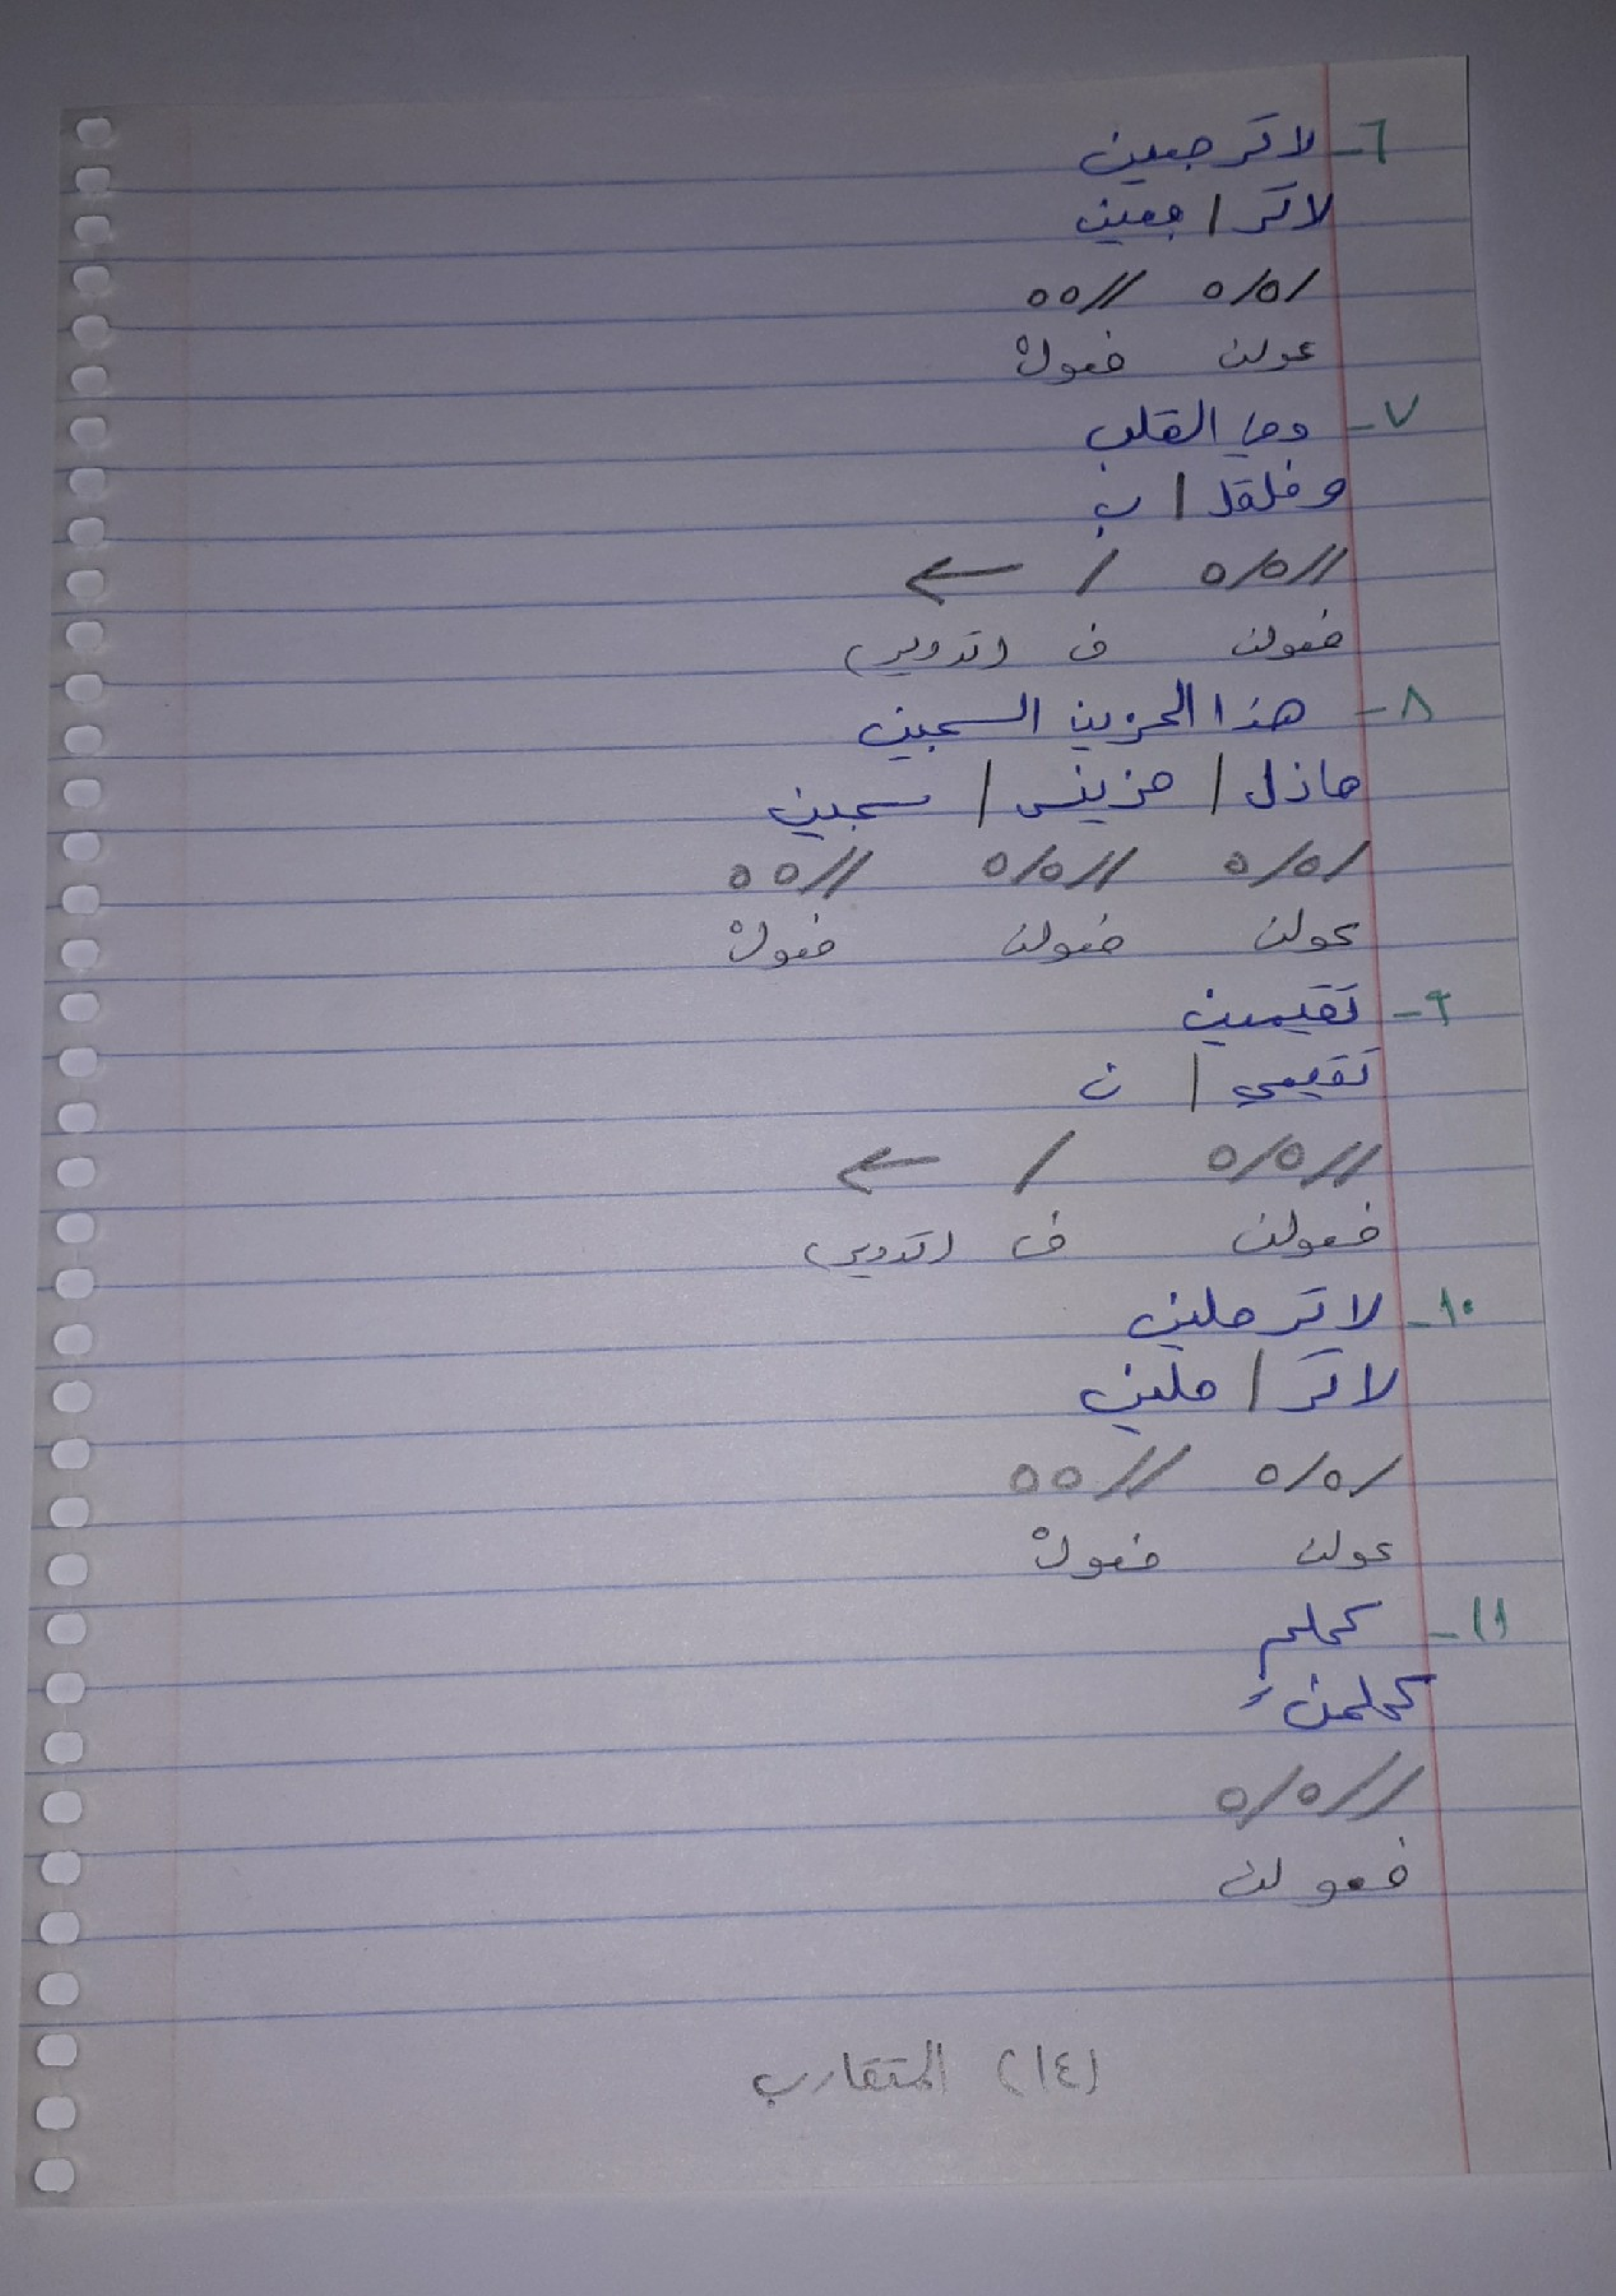 ٦- لا ترجعين
لا تر / جعين
/ه/ه //هه
عولن فعولْ
٧- وفي القلب
وفلقل / ب
//ه/ه / ←
فعولن ف (تدوير)
٨- هذا الحزين السجين
هاذل / حزينس / سجين
/ه/ه //ه/ه //هه
عولن فعولن فعولْ
٩- تقيمين
تقيمي / ن
//ه/ه / ←
فعولن ف (تدوير)
١٠- لا ترحلين
لا تر / حلين
/ه/ه //هه
عولن فعولْ
١١- كحلمٍ
كحلمنْ
//ه/ه
فعولن
(١٤) المتقارب